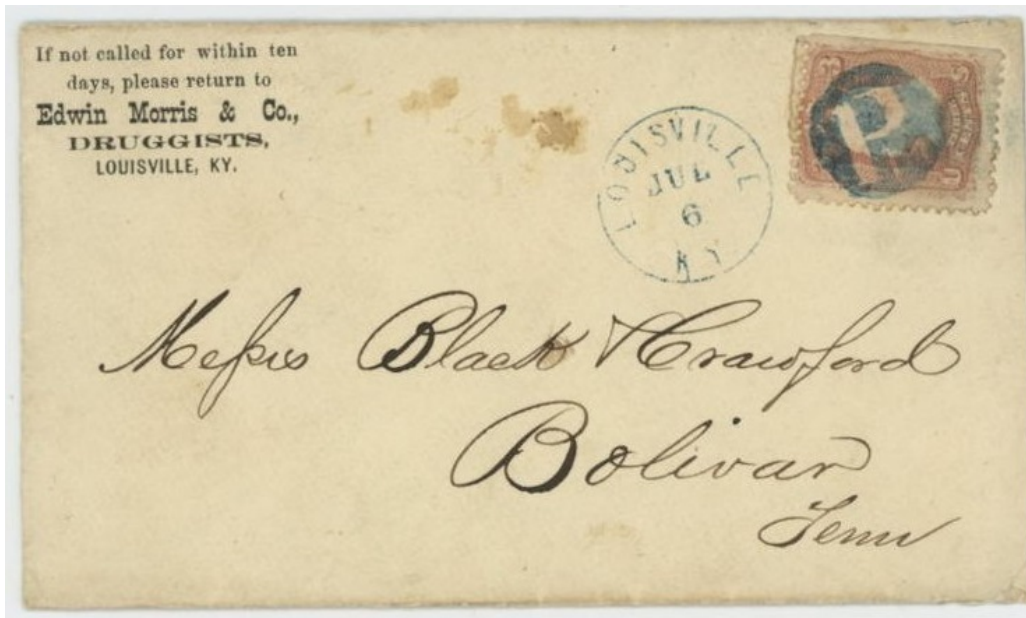 If not called for within ten
days, please return to
Edwin Morris & Co.,
DRUGGISTS,
LOUISVILLE, KY.
LOUISVILLE
JUL
6
KY
P
Messrs Black & Crawford
Bolivar
Tenn